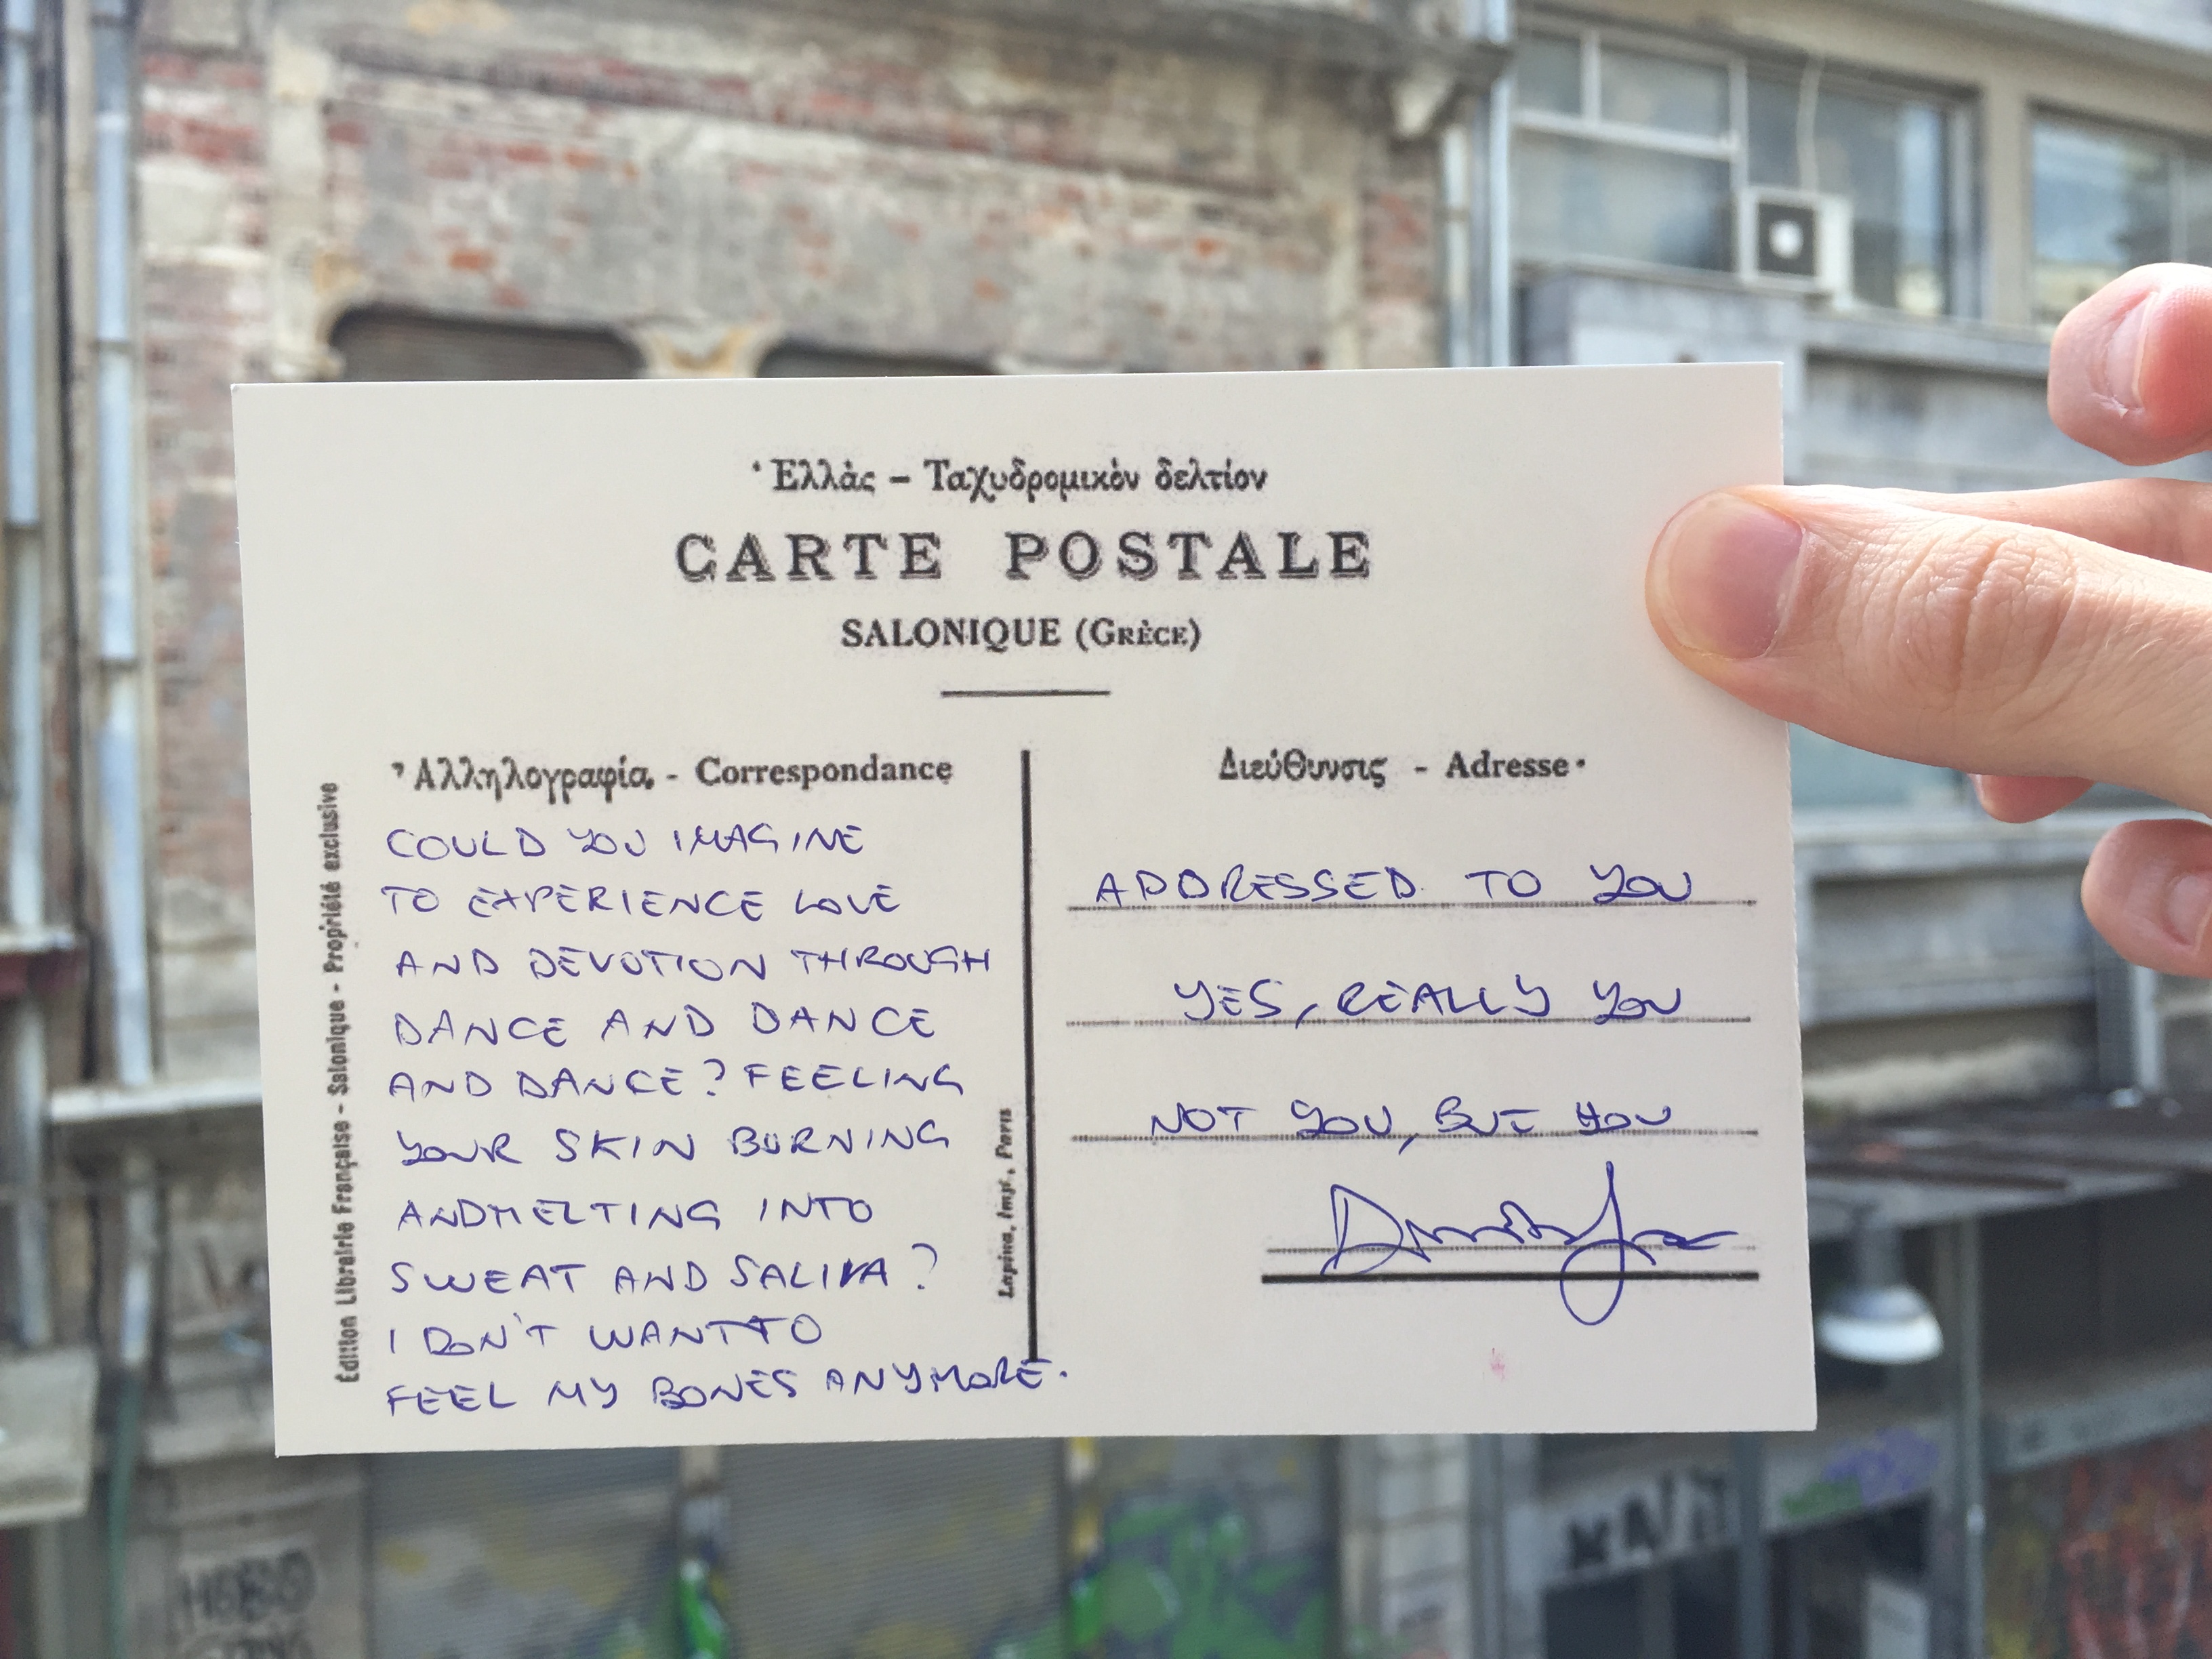 Ἑλλὰς – Ταχυδρομικὸν δελτίον
CARTE POSTALE
SALONIQUE (GRÈCE)
Ἀλληλογραφία. - Correspondance
COULD YOU IMAGINE
TO EXPERIENCE LOVE
AND DEVOTION THROUGH
DANCE AND DANCE
AND DANCE? FEELING
YOUR SKIN BURNING
AND MELTING INTO
SWEAT AND SALIVA?
I DON'T WANT TO
FEEL MY BONES ANYMORE.
Edition Librairie Française - Salonique - Propriété exclusive
Lapina, Imp., Paris
Διεύθυνσις - Adresse
ADDRESSED TO YOU
YES, REALLY YOU
NOT YOU, BUT YOU